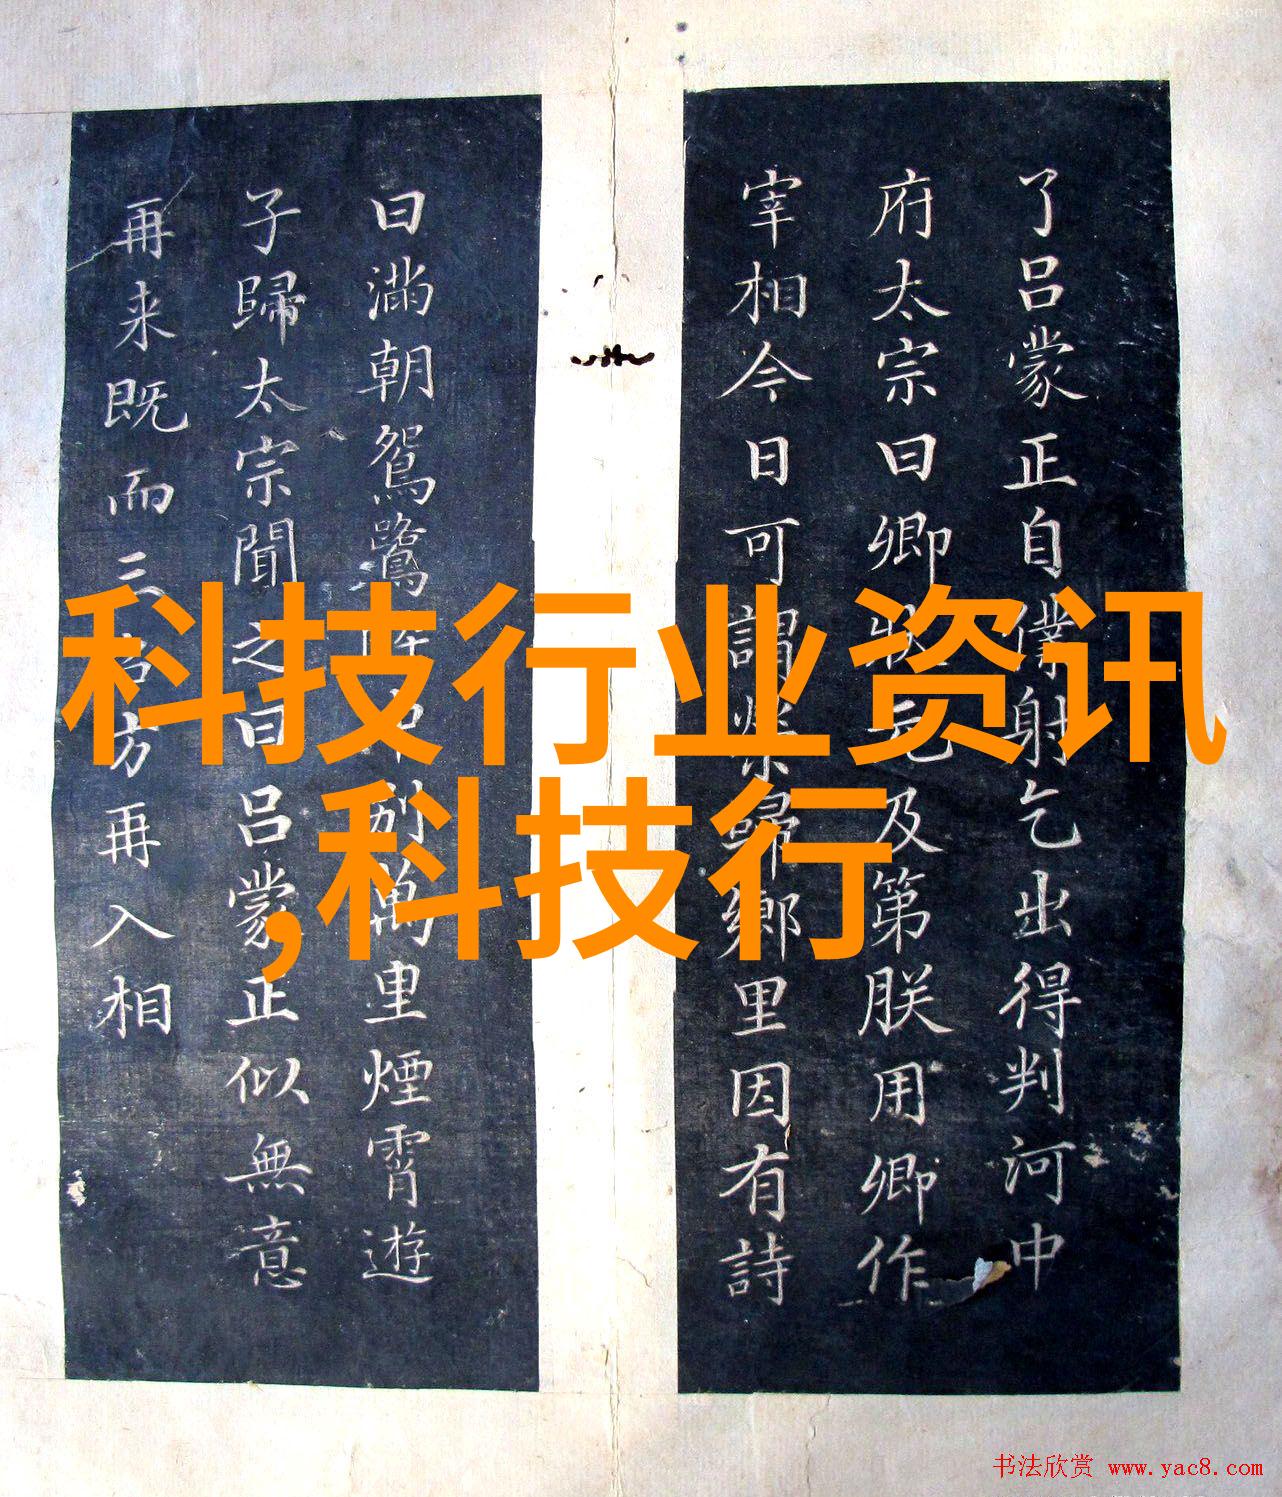 科技行业资讯
,科技行
了吕蒙正自僕射乞出得判河中
府太宗曰卿狀元及第朕用卿作
宰相今日可謂榮歸鄉里因有詩
曰滿朝鴛鷺別萬里煙霄遊
子歸太宗聞之曰吕蒙正似無意
再来既而三召方再入相
书法欣赏 www.yac8.com